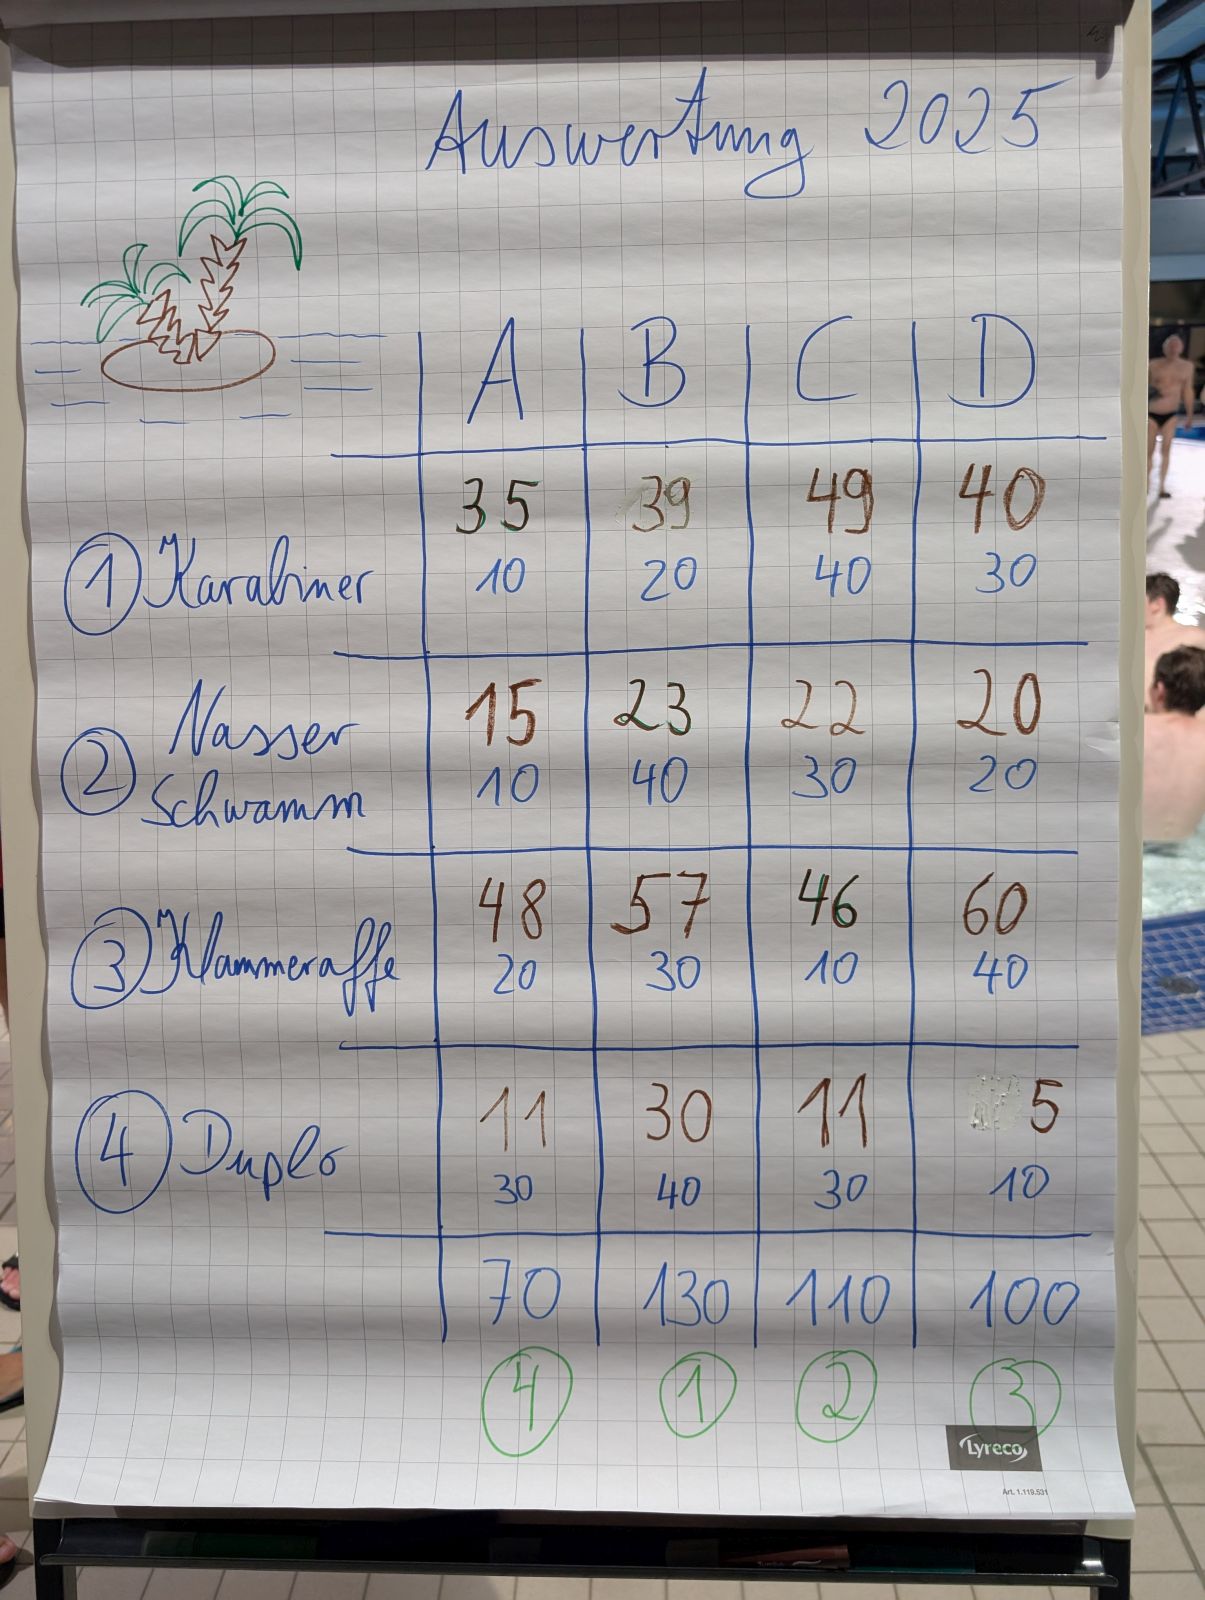 Auswertung 2025
A B C D
35 39 49 40
① Karabiner 10 20 40 30
Nasser 15 23 22 20
② Schwamm 10 40 30 20
48 57 46 60
③ Klammeraffe 20 30 10 40
11 30 11 5
④ Duplo 30 40 30 10
70 130 110 100
④ ① ② ③
Lyreco
Art. 1.119.531